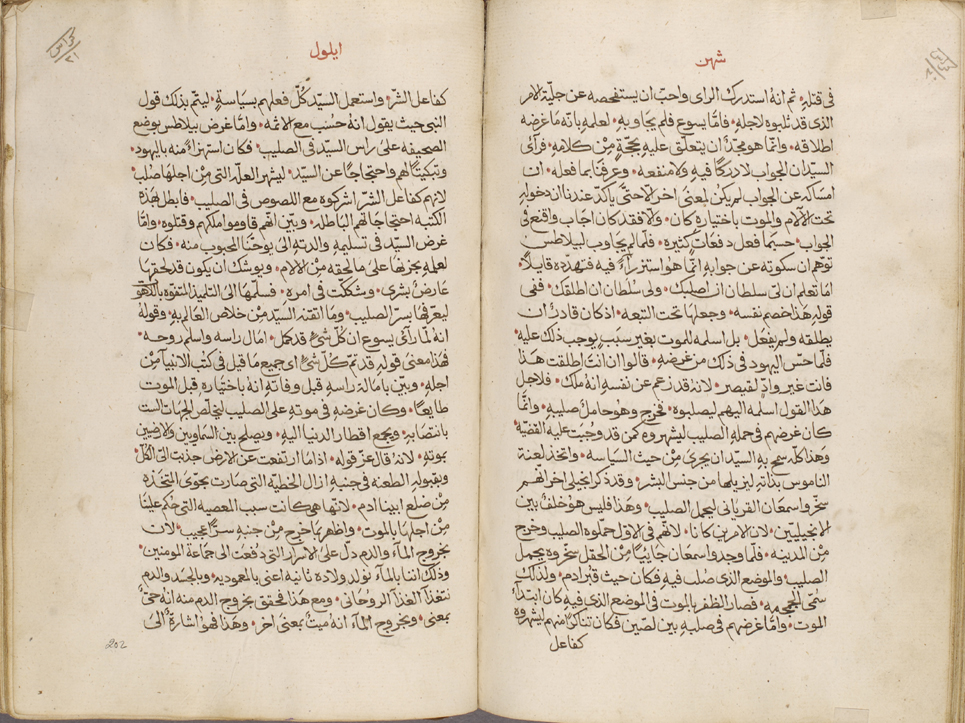 شهر
في قتله ثم انه استدرك الراى واحبّ ان يستفحصه عن جليّة الامر
الذى قد ثلبوه لاجله • فامّا يسوع فلم يجاوبه • لعلمه بانّه ما غرضه
اطلاقه • وانّما هو مجدّ ان يتعلق عليه بحجّةٍ مِنْ كلامه • فرآى
السيّد ان الجواب لا دركًا فيه ولا منفعه • وعرفنا بما فعله • ان
امساكه عن الجواب لم يكن لمعنىً اخر الاّ حتّى يأكّد عندنا ان دخوله
تحت الآلام والموت باختياره كان • ولا فقد كان اجاب واقنع في
الجواب • حسبما فعل دفعاتٍ كثيره • فلمّا لم يجاوب لبيلاطس
توهّم ان سكوته عن جوابه انّما هو استزراءً فيه فتهدّده قايلاً •
اما تعلم ان لى سلطان ان اصلبك • ولى سُلطان ان اطلقك • ففى
قوله هذا خصم نفسه • وجعلها تحت التبعه • اذ كان قادرًا ان
يطلقه ولم يفعل • بل اسلمه للموت بغير سببٍ يوجب ذلك عليه •
فلمّا حسّ اليهود في ذلك من غرضه • قالوا ان انت اطلقت هذا
فانت غير وادٍّ لقيصر • لانه قد زعم عن نفسه انه ملك • فلاجل
هذا القول اسلمه اليهم ليصلبوه • فخرج وهو حامل صليبه • وانّما
كان غرضهم في حمله الصليب ليشهروه كمن قد وجبت عليه القضيّه •
وهذا كلّه سمح به السيّد ان يجرى مِنْ حيث السياسه • واتخذ لعنة
الناموس بذاته ليزيلها من جنس البشر • وقد ذكر انجيلى اخر انّهم
سخّروا سمعان القريانى ليحمل الصليب • وهذا فليس هو خلفٌ بين
الانجيليّين • لان الامرين كانا • لانّهم في الاوّل حملوه الصليب وخرج
مِنْ المدينه • فلمّا وجدوا سمعان جايئًا مِنْ الحقل سخّروه بحمل
الصليب • والموضع الذى صُلب فيه فكان حيث قبر ادم • ولذلك
سُمّى الجمجمه • فصار الظفر بالموت في الموضع الذى فيه كان ابتدآء
الموت • وامّا غرضهم في صلبه بين لصّين فكان تناكرًا منهم ليشهروه
كفاعل
ايلول
كفاعل الشرّ • واستعمل السيّد كُلّ فعلهم بسياسةٍ • ليتمّ بذلك قول
النبى حيث يقول انهُ حُسب مع الاثمه • وامّا غرض بيلاطس بوضع
الصحيفه على راس السيّد في الصليب • فكان استهزآءً منه باليهود •
وتبكيتًا لهم واحتجاجًا عن السيّد • ليشهر العلّه التى مِنْ اجلها صلب •
لانهم كفاعل الشرّ اشركوه مع اللصوص في الصليب • فابطل بهذه
الكتبه احتجاجاتهم الباطله • وبيّن انّهم قاوموا ملكهم وقتلوه • وامّا
غرض السيّد في تسليمه والدته الى يوحنّا المحبوب منه • فكان
لعلمه بحزنها على ما لحقه مِنْ الالام • ويوشك ان يكون قد لحقها
عارضٌ بشرى • وشككت في امره • فسلّمها الى التلميذ المتفوّه باللاهوت
ليعرّفها بسرّ الصليب • وما اتقنه السيّد من خلاص العالم به • وقوله
انهُ لمّا رآى يسوع ان كُلّ شىءٍ قد كمل • امال راسه واسلم روحه •
فهذا معنى قوله قد تمّ كُلّ شىءٍ اى جميع ما قيل في كتب الانبيآء مِنْ
اجله • وبيّن بامالة راسه قبل وفاته انهُ باختياره قبل الموت
طايعًا • وكان غرضه في موته على الصليب ليخلّص الجهات الست
بانتصابه • ويجمع اقطار الدنيا اليه • ويصلح بين السماويين والارضيين
بموته • لانهُ قال عزّ قوله • اذا ما ارتفعت عن الارض جذبت الىّ الكُلّ •
وبقبوله الطعنه في جنبه ازال الخطيّه التى صارت بحوّى المتخذه
مِنْ ضلع ابينا ادم • لانها هى كانت سبب المعصيه التى حُكم علينا
مِنْ اجلها بالموت • واظهر بما خرج مِنْ جنبه سرًّا عجيب • لان
بخروج المآء والدم دلّ على الاسرار التى دفعت الى جماعة المومنين •
وذلك اننا بالمآء نولد ولاده ثانيه اعنى بالمعموديه • وبالجسد والدم
نتغذّا الغذا الروحانى • ومع هذا فحقق بخروج الدم منه انهُ حىٌّ
بمعنى • وبخروج المآء انهُ ميتٌ بمعنى اخر • وهذا فهو اشارةً الى
202